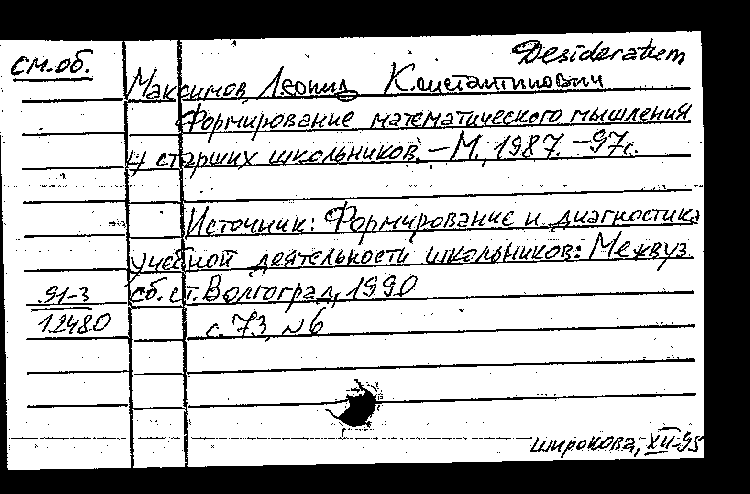 Desideratum
см.об.
Максимов, Леонид Константинович
Формирование математического мышления
у старших школьников. – М., 1987. – 97с.
Источник: Формирование и диагностика
учебной деятельности школьников: Межвуз.
91-3 сб. ст. Волгоград, 1990
12480 с. 73, №6
XII-95